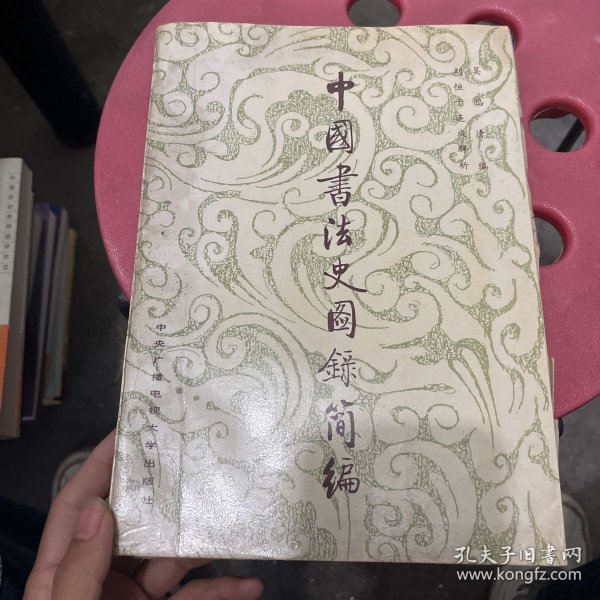 中國書法史图録简编
吴鸿清编
中央广播电视大学出版社
孔夫子旧书网
www.kongfz.com